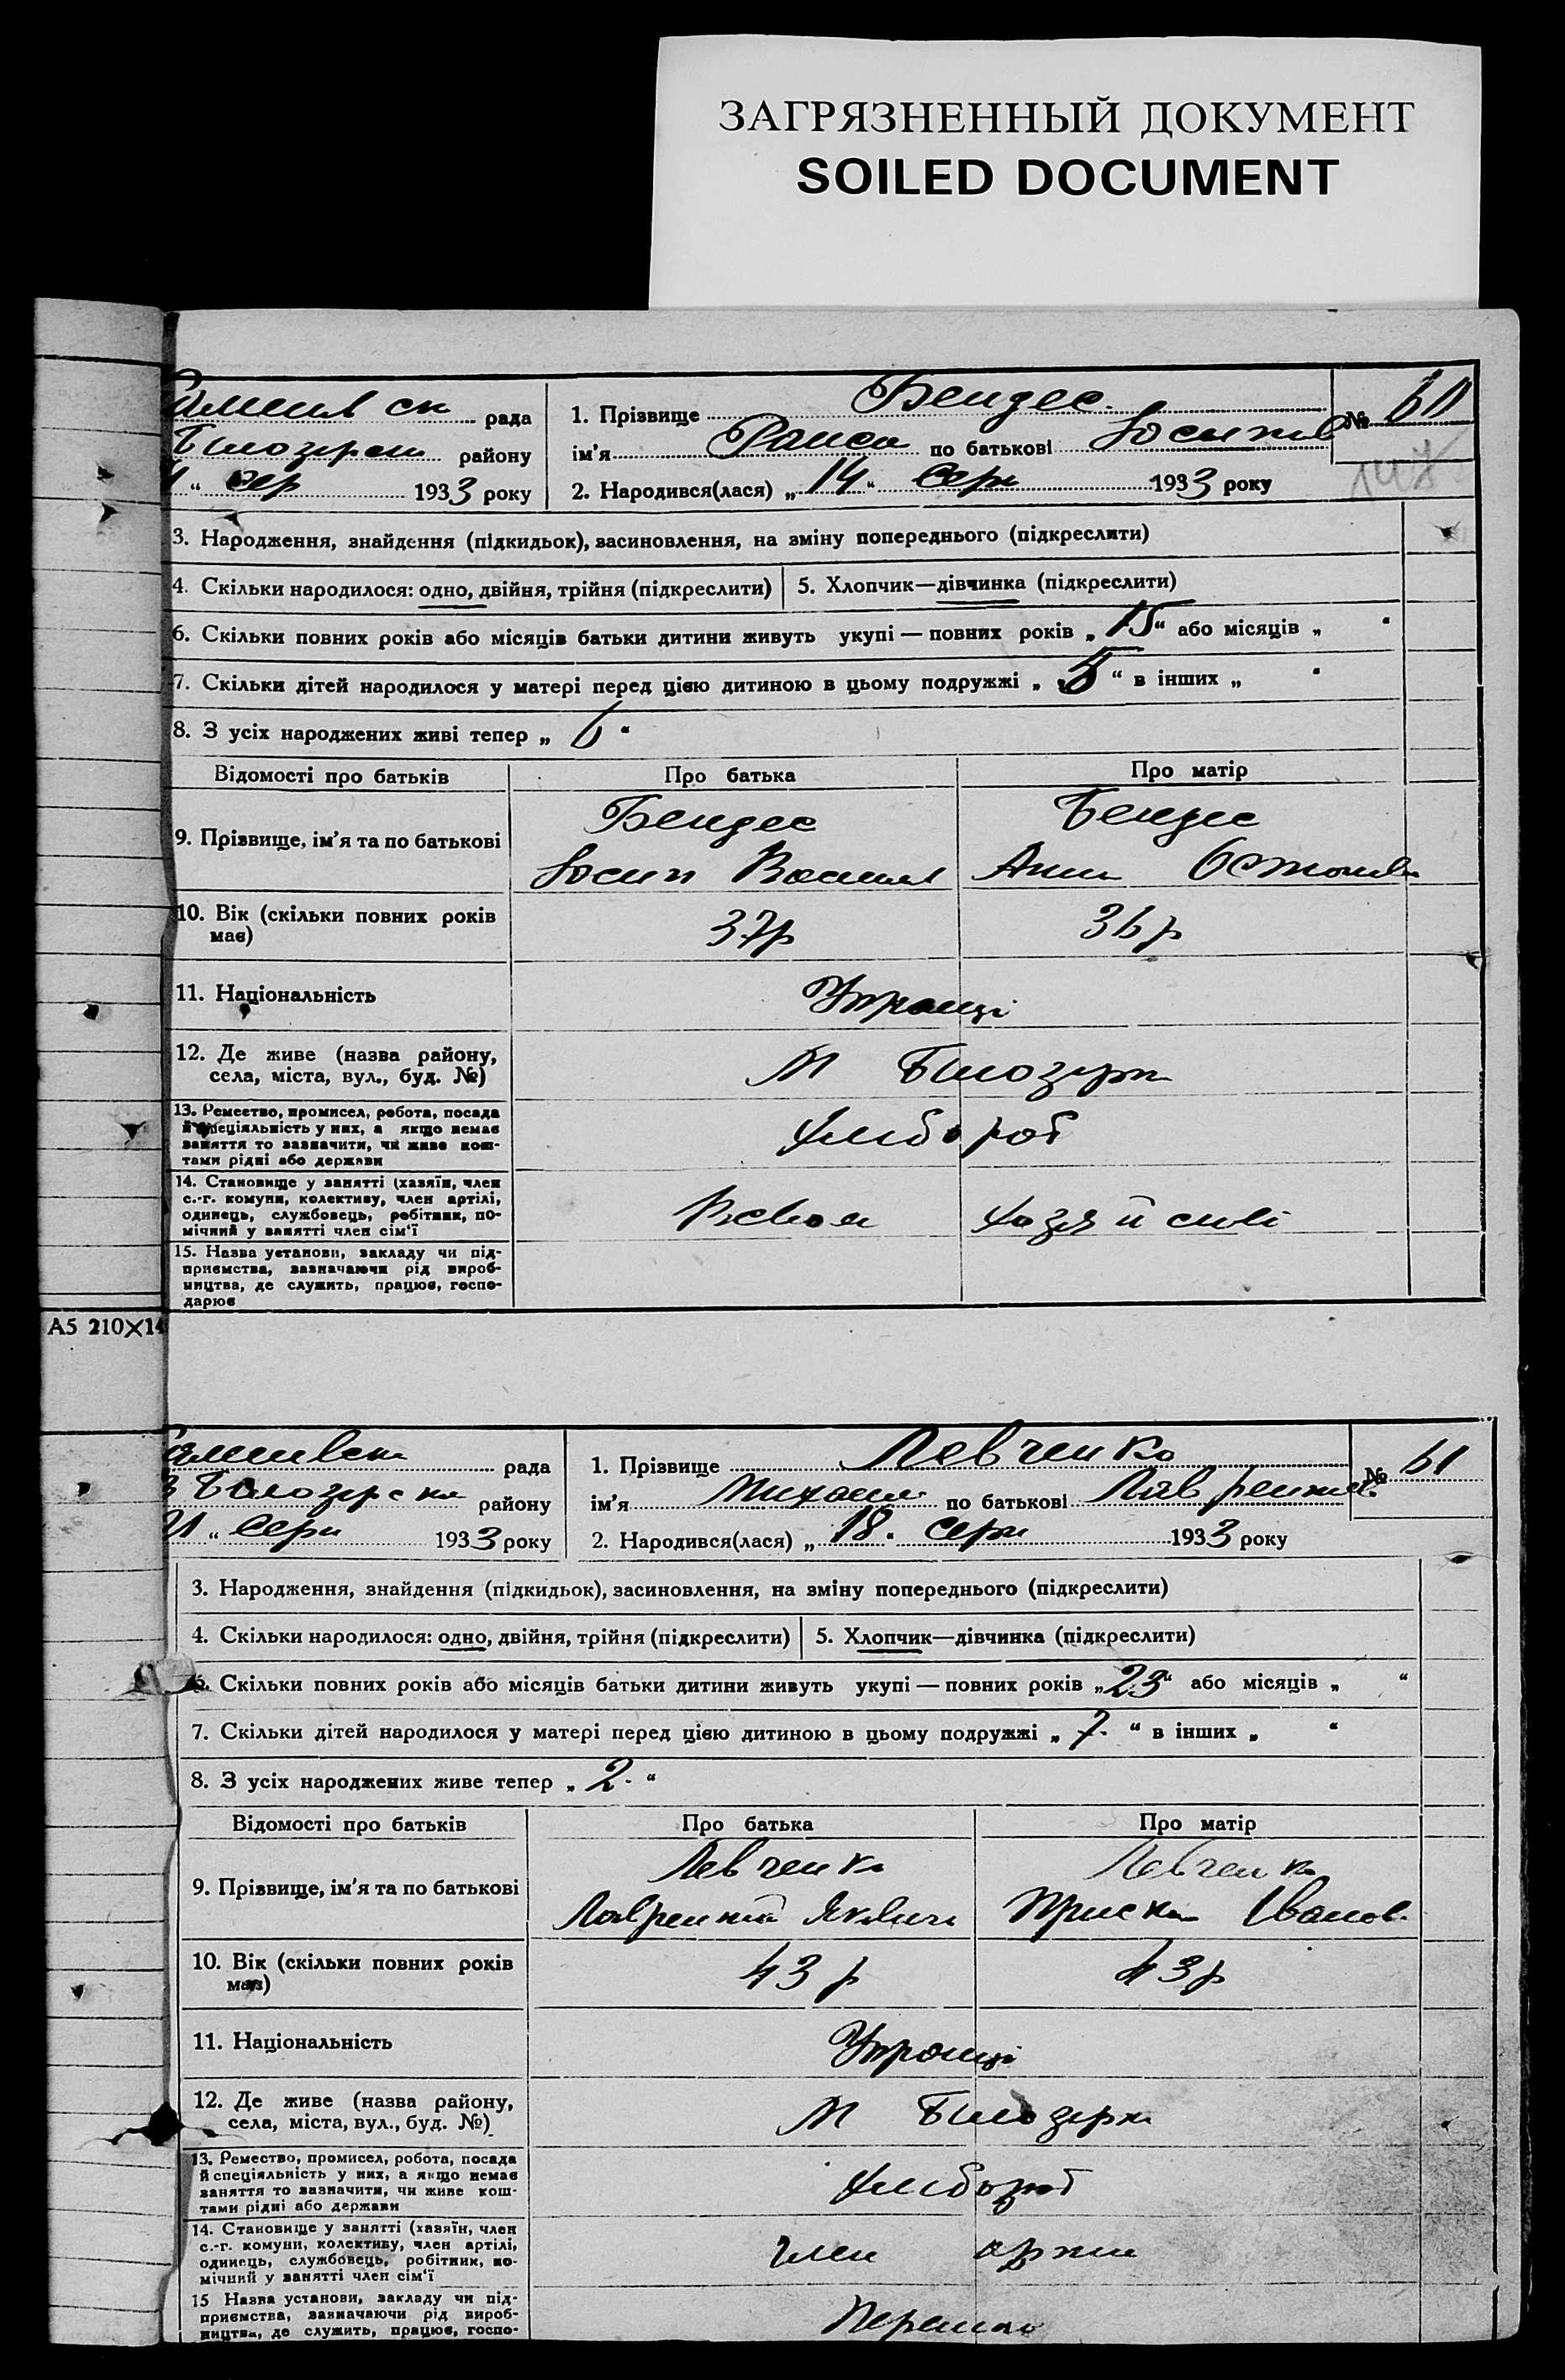 ЗАГРЯЗНЕННЫЙ ДОКУМЕНТ
SOILED DOCUMENT
рада
району
сер 1933 року
1. Прізвище Бендес.
ім'я Раиса по батькові
2. Народився(лася) „ 14 “ Серп 1933 року
№ 60
3. Народження, знайдення (підкидьок), засиновлення, на зміну попереднього (підкреслити)
4. Скільки народилося: одно, двійня, трійня (підкреслити)
5. Хлопчик—дівчинка (підкреслити)
6. Скільки повних років або місяців батьки дитини живуть укупі — повних років „ 15 “ або місяців „ “
7. Скільки дітей народилося у матері перед цією дитиною в цьому подружжі „ 5 “ в інших „ “
8. З усіх народжених живі тепер „ 6 “
Відомості про батьків
Про батька
Про матір
9. Прізвище, ім'я та по батькові
Бендес
Бендес
Осип Васил
Анна Остапів
10. Вік (скільки повних років
має)
37р
36р
11. Національність
Украінці
12. Де живе (назва району,
села, міста, вул., буд. №)
М Билозерка
13. Ремество, промисел, робота, посада
й спеціяльність у них, а якщо немає
заняття то зазначити, чи живе кош-
тами рідні або держави
хлібороб
14. Становище у занятті (хазяїн, член
с.-г. комуни, колективу, член артілі,
одинець, службовець, робітник, по-
мічний у занятті член сім'ї
В своем хазяйстві
15. Назва установи, закладу чи під-
приємства, зазначаючи рід вироб-
ництва, де служить, працює, госпо-
дарює
А5 210×14
рада
Билозерска району
21 “ Серп 1933 року
1. Прізвище Левченко
ім'я Михаил по батькові Лаврентиев.
2. Народився(лася) „ 18. Серп 1933 року
№ 61
3. Народження, знайдення (підкидьок), засиновлення, на зміну попереднього (підкреслити)
4. Скільки народилося: одно, двійня, трійня (підкреслити)
5. Хлопчик—дівчинка (підкреслити)
6. Скільки повних років або місяців батьки дитини живуть укупі — повних років „ 23 “ або місяців „ “
7. Скільки дітей народилося у матері перед цією дитиною в цьому подружжі „ 7. “ в інших „ “
8. З усіх народжених живе тепер „ 2. “
Відомості про батьків
Про батька
Про матір
9. Прізвище, ім'я та по батькові
Левченко
Левченко
Лаврентий Якович
Приска Іванов.
10. Вік (скільки повних років
має)
43 р
43р
11. Національність
Украінці
12. Де живе (назва району,
села, міста, вул., буд. №)
М Билозерка
13. Ремество, промисел, робота, посада
й спеціяльність у них, а якщо немає
заняття то зазначити, чи живе кош-
тами рідні або держави
хлібороб
14. Становище у занятті (хазяїн, член
с.-г. комуни, колективу, член артілі,
одинець, службовець, робітник, по-
мічний у занятті член сім'ї
член артили
15 Назва установи, закладу чи під-
приємства, зазначаючи рід вироб-
ництва, де служить, працює, госпо-